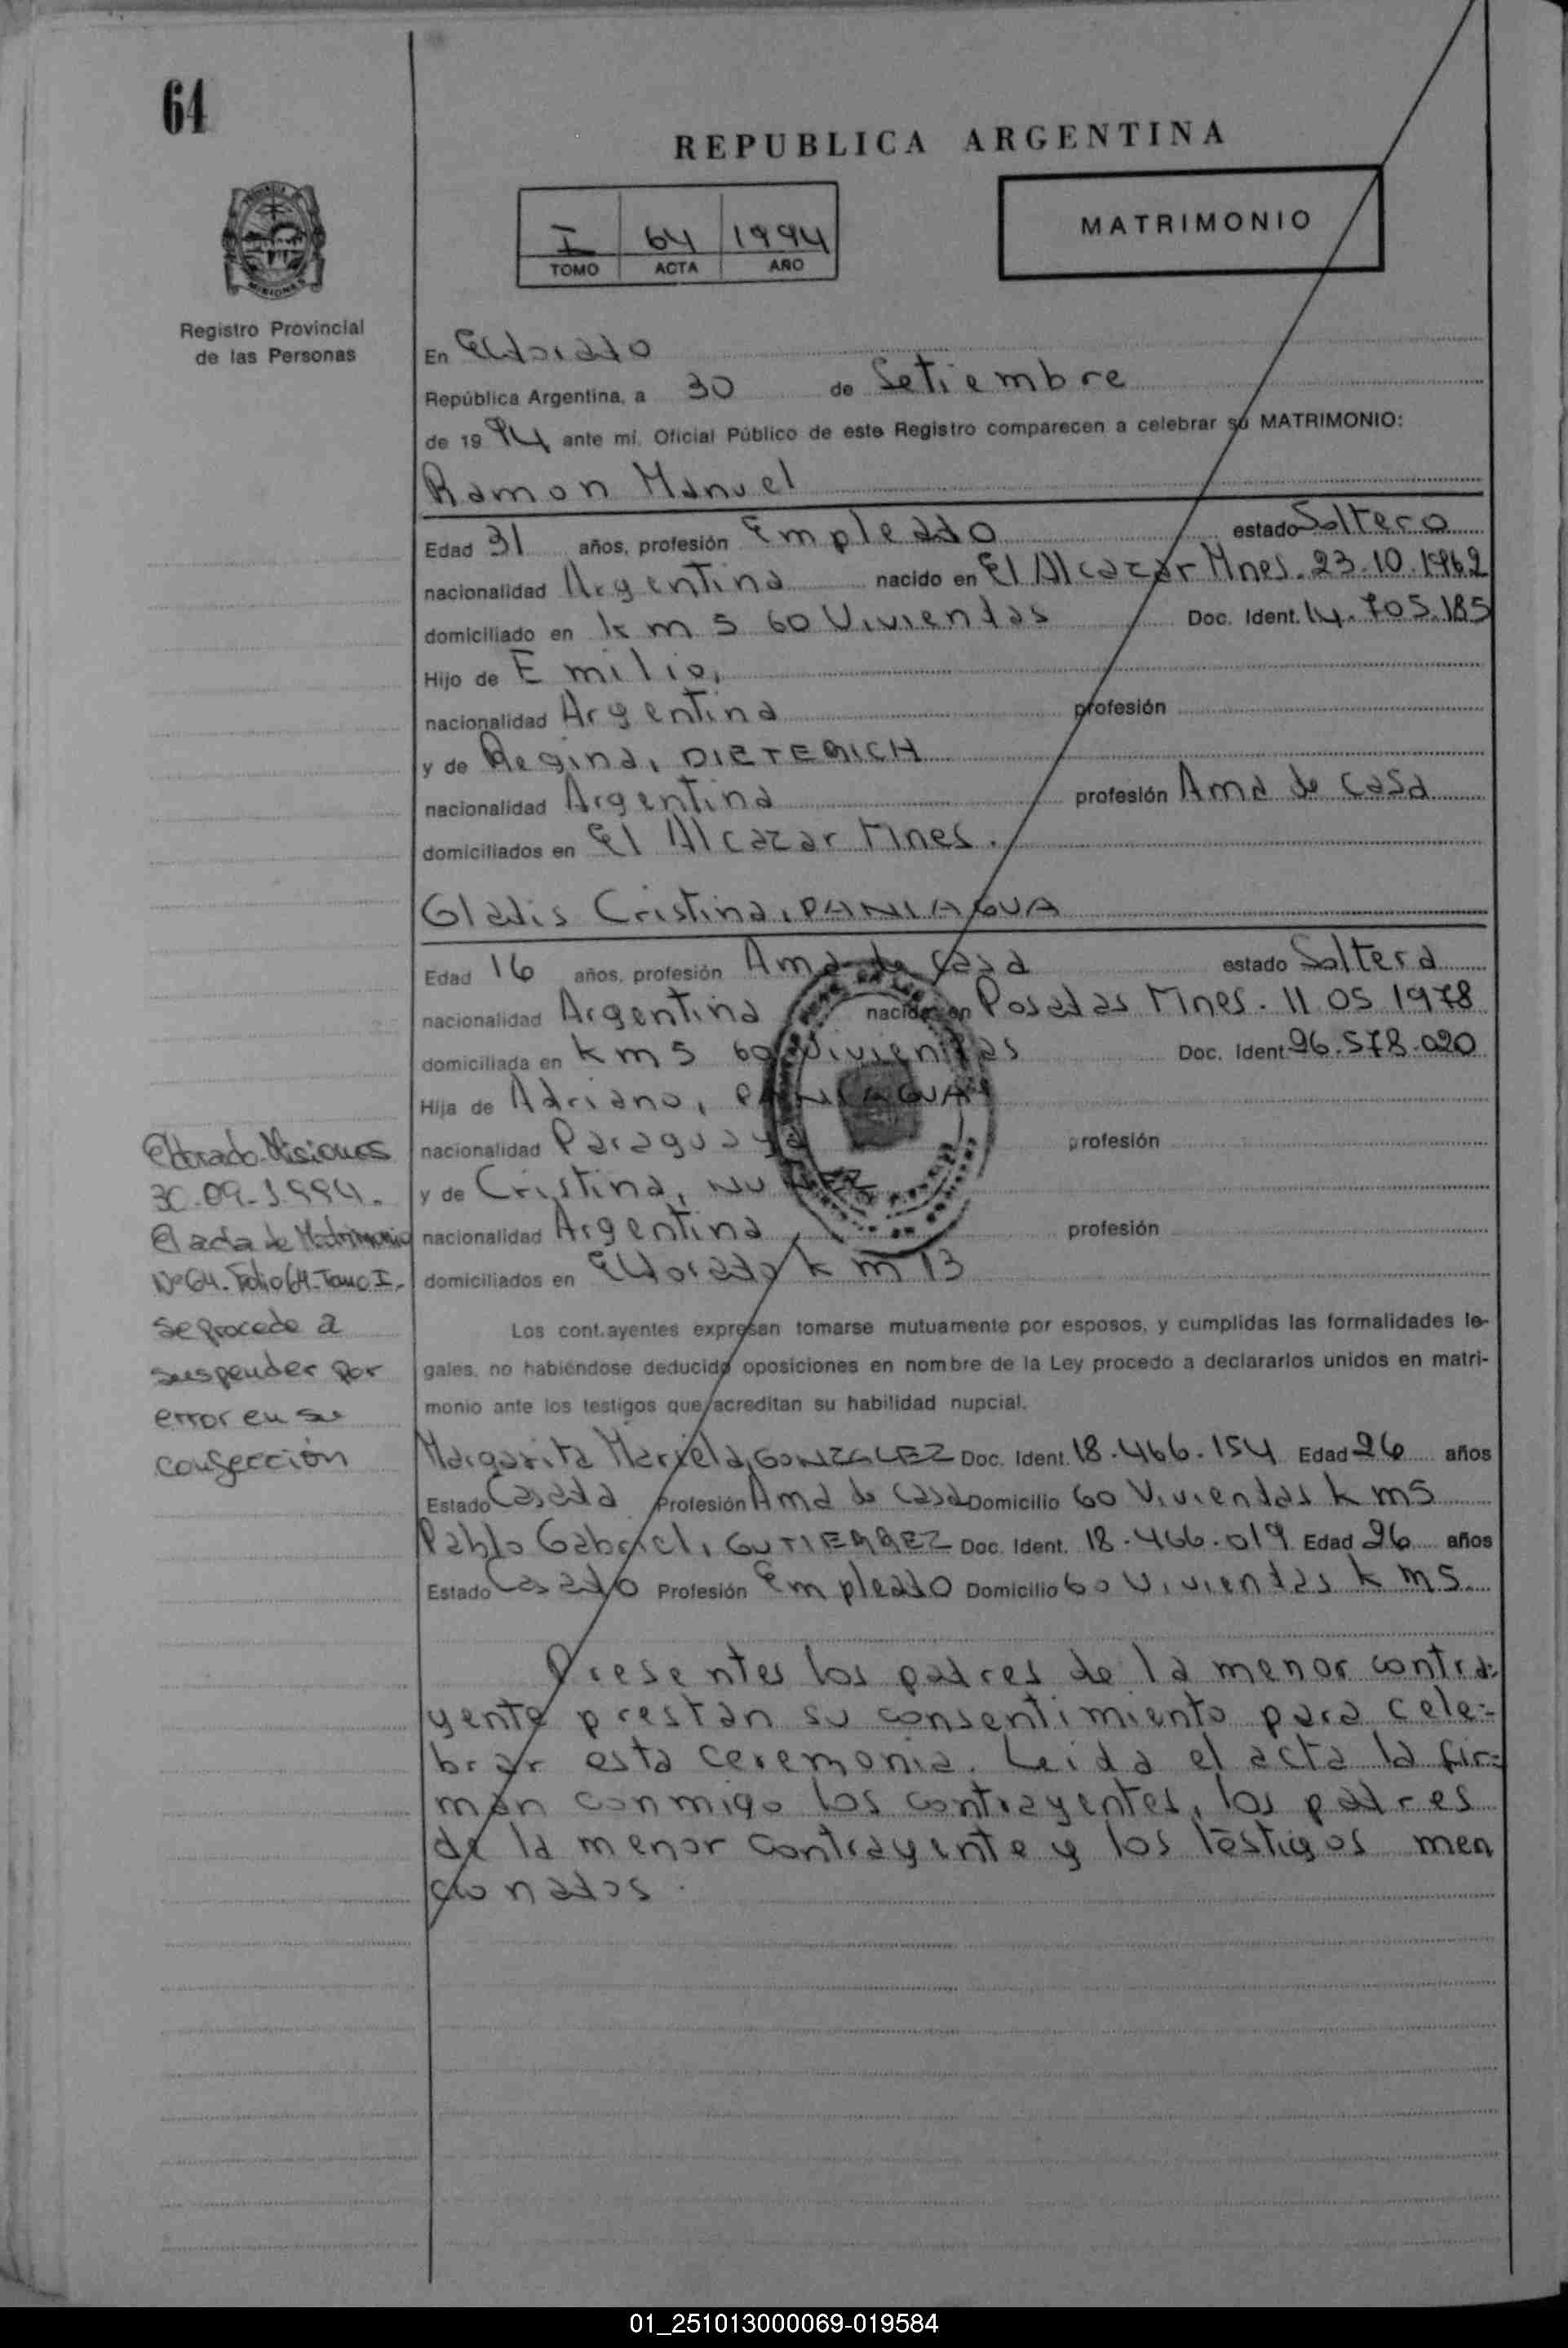 64
REPUBLICA ARGENTINA
I 64 1994
TOMO ACTA AÑO
MATRIMONIO
MISIONES
Registro Provincial
de las Personas
En Eldorado
República Argentina, a 30 de Setiembre
de 1994 ante mí, Oficial Público de este Registro comparecen a celebrar su MATRIMONIO:
Ramon Manuel
Edad 31 años, profesión Empleado estado Soltero
nacionalidad Argentina nacido en El Alcazar Mnes. 23.10.1962
domiciliado en km 5 60 Viviendas Doc. Ident. 14.705.185
Hijo de Emilio,
nacionalidad Argentina profesión
y de Regina, DIETERICH
nacionalidad Argentina profesión Ama de casa
domiciliados en El Alcazar Mnes.
Gladis Cristina, PANIAGUA
Edad 16 años, profesión Ama de casa estado Soltera
nacionalidad Argentina nacida en Posadas Mnes. 11.05.1978
domiciliada en km 5 60 Viviendas Doc. Ident. 26.578.020
Hija de Adriano, PANIAGUA
nacionalidad Paraguaya profesión
y de Cristina, NUÑEZ
nacionalidad Argentina profesión
domiciliados en Eldorado km 13
Los cont.ayentes expresan tomarse mutuamente por esposos, y cumplidas las formalidades le-
gales, no habiéndose deducido oposiciones en nombre de la Ley procedo a declararlos unidos en matri-
monio ante los testigos que acreditan su habilidad nupcial.
Margarita Mariela, GONZALEZ Doc. Ident. 18.466.154 Edad 26 años
Estado Casada Profesión Ama de casa Domicilio 60 Viviendas km 5
Pablo Gabriel, GUTIERREZ Doc. Ident. 18.466.019 Edad 26 años
Estado Casado Profesión Empleado Domicilio 60 Viviendas km 5.
Presentes los padres de la menor contra-
yente prestan su consentimiento para cele-
brar esta ceremonia. Leida el acta la fir-
man conmigo los contrayentes, los padres
de la menor contrayente y los testigos men
cionados.
Eldorado. Misiones
30.09.1994.
El acta de Matrimonio
Nº 64. Folio 64. Tomo I.
se procede a
suspender por
error en su
confección
01_251013000069-019584